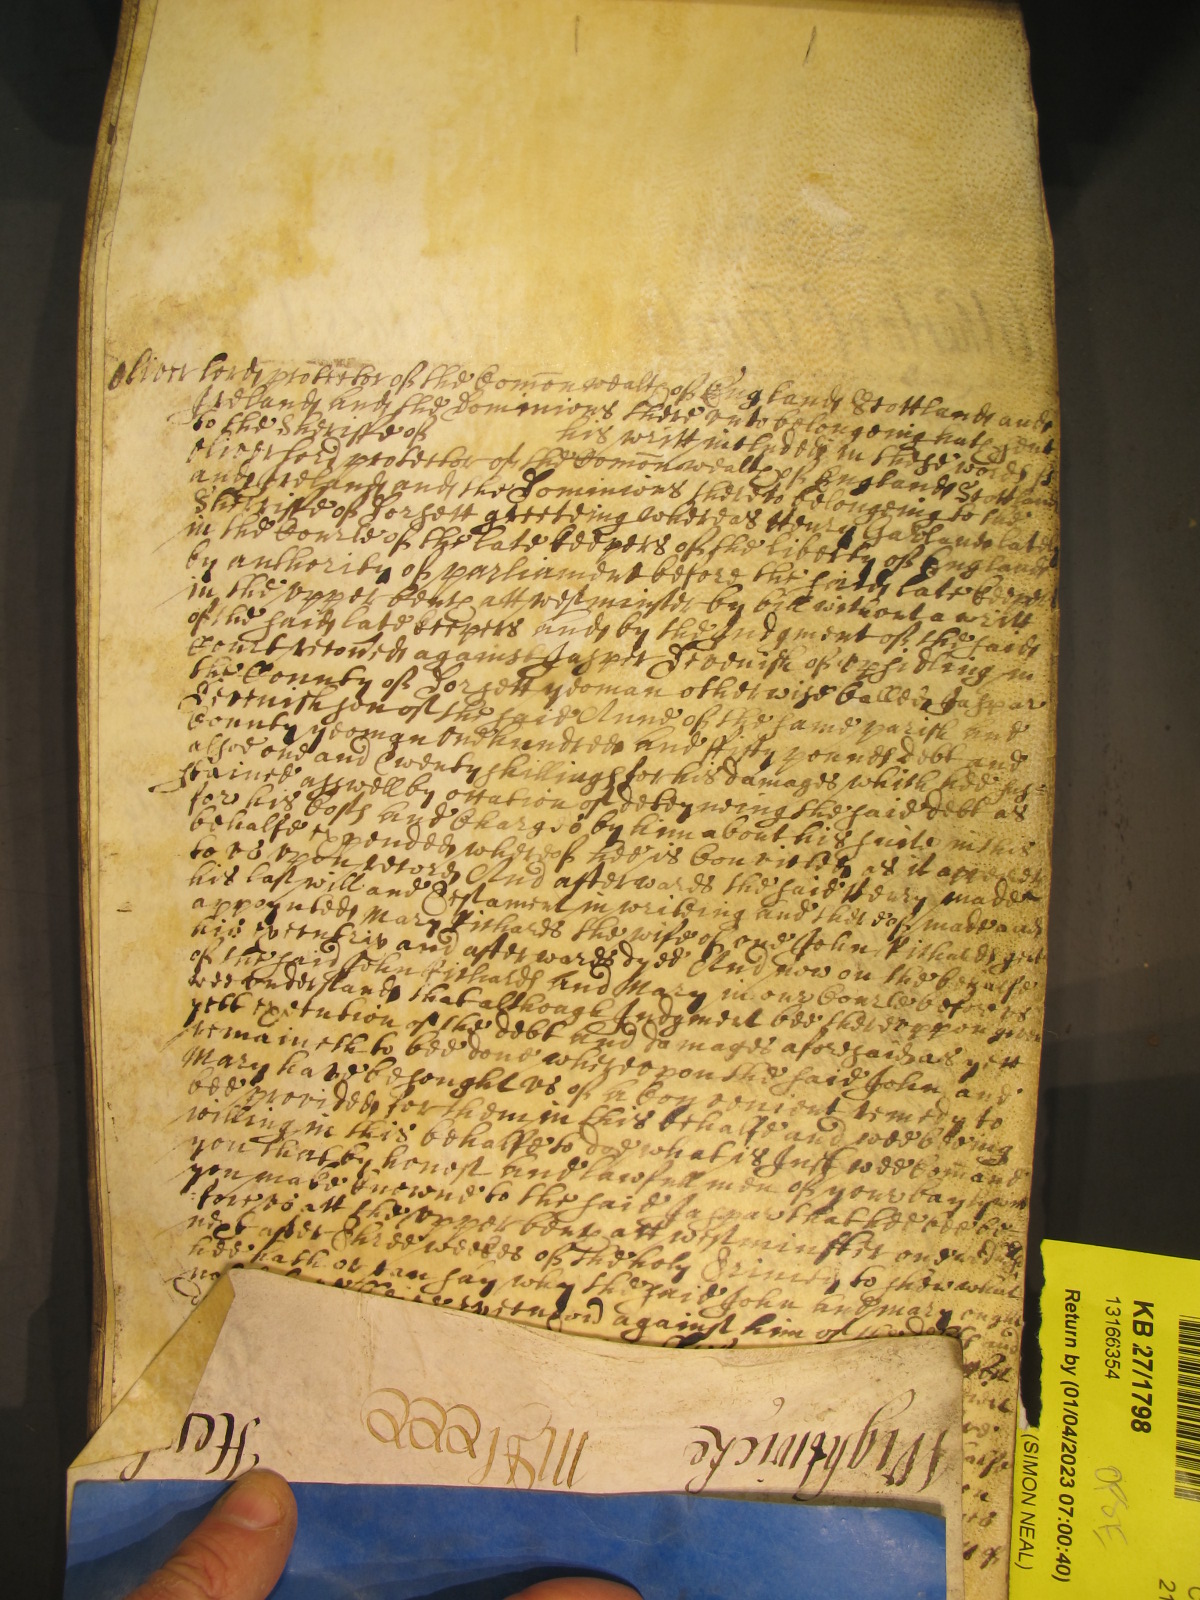 Oliver lord protector of the Comōnwealth of England Scottland and
Ireland and the Dominions there onto belongeing hath sent
to the Sheriffe of his writt included in these words ss
Oliver lord protector of the Comōn wealth of England Scotland
and Ireland and the Dominions thereto belongeing to the
Sherriffe of Dorsett greeteing whereas Henry Garland lately
in the Courte of the late keepers of the liberty of England
by authority of parliament before the said late keepers
in the vpper bench att westminster by bill without a writt
of the said late keepers and by the Judgment of the said
Court recoverd against Jasper Devenish of in
the County of Dorsett yeoman otherwise called Jaspar
Devenish son of the said Anne of the same parish and
County yeoman One hundred and fifty pounds Debt and
alsoe one and Twenty shillings for his damages which hee sus=
stained aswell by occation of deteyneing the said debt as
for his Costs and Charges by him about his suite in this
behalfe expended whereof hee is convicted as it appeareth
to vs vpon record And afterwards the said Henry made
his last will and Testament in writeing and thereof made and
appoynted Mary Richards the wife of one John Richards gent
his executrix and afterwards dyed And now on the behalfe
of the said John Richards and Mary in our Courte before vs
wee vnderstand that although Judgment bee therevppon given
yett execution of the debt and damages aforesaid as yett
remaineth to bee done wherevpon the said John and
Mary have besought vs of a convenient remedy to
bee provided for them in this behalfe and wee being
willing in this behalfe to doe what is Just wee Comand
you that by honest and lawfull men of your baylywick
you make knowne to the said Jaspar that hee bee be=
=fore vs att the vpper bench att westminster on
next after Three weekes of the holy Trinity to shew what
hee hath or can say why the said John and mary ought
not execucion against him of the debt and
Wightwicke
KB 27/1798
13166354
Return by (01/04/2023 07:00:40)
(SIMON NEAL)